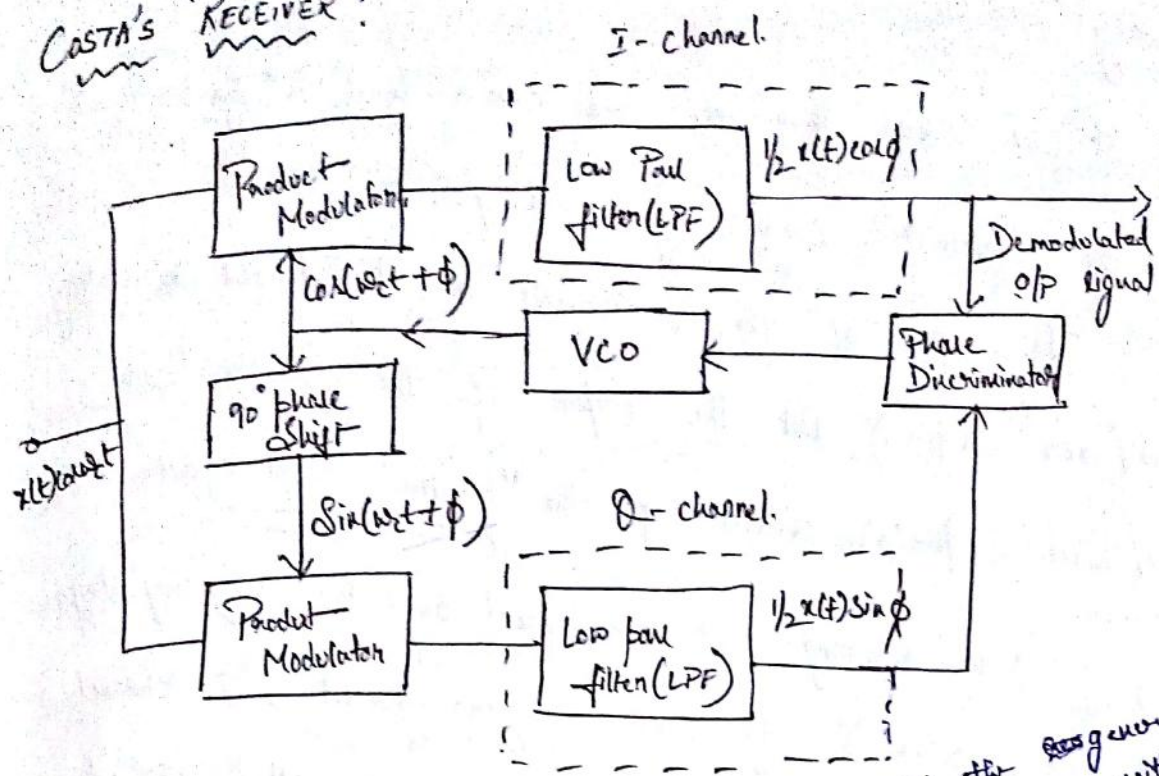 COSTA'S RECEIVER:
I - channel.
Product
Modulator
Low Pass
filter (LPF)
1/2 x(t) cosϕ
Demodulated
o/p signal
cos(ωct + ϕ)
VCO
Phase
Discriminator
90° phase
Shift
x(t)cosωct
Sin(ωct + ϕ)
Q - channel.
Product
Modulator
Low pass
filter (LPF)
1/2 x(t) Sin ϕ
the